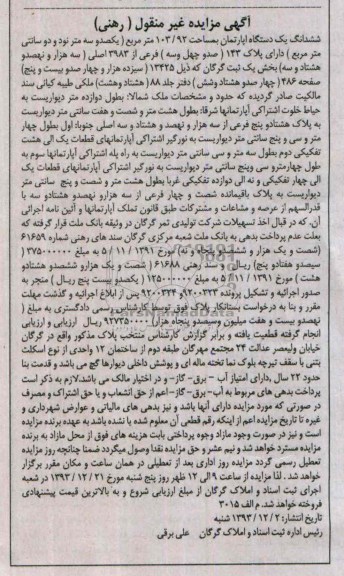 آگهی مزایده غیر منقول ( رهنی)
ششدانگ یک دستگاه آپارتمان بمساحت ۱۰۳/۹۲ متر مربع ( یکصدو سه متر نود و دو سانتی
متر مربع ) دارای پلاک ۱۴۳ ( صدو چهل وسه ) فرعی از ۳۹۸۳ اصلی ( سه هزار و نهصدو
هشتاد و سه) بخش یک ثبت گرگان که ذیل ۱۳۴۲۵ ( سیزده هزار و چهار صدو بیست و پنج)
صفحه ۴۸۶ ( چهار صدو هشتاد وشش ) دفتر جلد ۸۸ ( هشتاد وهشت) ملکی طیبه کیانی سند
مالکیت صادر گردیده که حدود و مشخصات ملک شمالا: بطول دوازده متر دیواریست به
حیاط خلوت اشتراکی آپارتمانها شرقا: بطول هشت متر و شصت و هفت سانتی متر دیواریست
به پلاک هشتادو پنج فرعی از سه هزار و نهصد و هشتاد و سه اصلی جنوبا: اول بطول چهار
متر و سی و پنج سانتی متر دیواریست به نورگیر اشتراکی آپارتمانهای قطعات یک الی هشت
تفکیکی دوم بطول سه متر و سی سانتی متر دیواریست به راه پله اشتراکی آپارتمانها سوم به
طول چهارمترو سی وپنج سانتی متر دیواریست به نورگیر اشتراکی آپارتمانهای قطعات یک
الی چهار تفکیکی و نه الی دوازده تفکیکی غربا بطول هشت متر و شصت و پنج سانتی متر
دیواریست به پلاک باقیمانده شصت و چهار فرعی از سه هزارو نهصدو هشتادو سه با
قدرالسهم از عرصه و مشاعات و مشترکات طبق قانون تملک آپارتمانها و آئین نامه اجرائی
آن، که در قبال اخذ تسهیلات شرکت تولیدی ثمر گرگان در وثیقه بانک ملت قرار گرفته که
بعلت عدم پرداخت بدهی به بانک ملت شعبه مرکزی گرگان سند های رهنی شماره ۶۱۶۵۹
(شصت و یک هزار و ششصدو پنجاه و نه) مورخ ۱۳۹۱ / ۱۱ / ۵ به مبلغ ۳۷۵۰۰۰۰۰۰ (
سیصدو هفتادو پنج) ریال و سند رهنی ۶۱۶۸۸ ( شصت و یک هزارو ششصدو هشتادو
هشت ) مورخ ۱۳۹۱ / ۱۱ / ۵ به مبلغ ۱۲۵۰۰۰۰۰۰ ( یکصدو بیست پنج ریال ) منجر به
صدور اجرائیه و تشکیل پرونده ۹۲۰۰۳۲۳ و ۹۲۰۰۳۲۴ پس از ابلاغ اجرائیه و گذشت مهلت
مقرر و بنا به درخواست بستانکار پلاک فوق توسط کارشناس رسمی دادگستری به مبلغ (
نهصدو بیست و هفت میلیون وسیصدو پنجاه هزار) ۹۲۷۳۵۰۰۰۰ ریال ارزیابی و ارزیابی
انجام گرفته قطعیت یافته و برابر گزارش کارشناس منتخب پلاک مذکور واقع در گرگان
خیابان ولیعصر عدالت ۲۴ مجتمع مهرگان طبقه دوم از ساختمان ۱۲ واحدی از نوع اسکلت
بتنی با سقف تیرچه بلوک نما تخته ماله ای و پوشش داخلی دیوارها گچ می باشد و قدمت بنا
حدود ۲۲ سال ,دارای امتیاز آب - برق- گاز- و در اختیار مالک می باشد.لازم به ذکر است
پرداخت بدهی های مربوط به آب- برق- گاز-اعم از حق انشعاب و یا حق اشتراک و مصرف
در صورتی که مورد مزایده دارای آنها باشد و نیز بدهی های مالیاتی و عوارض شهرداری و
غیره تا تاریخ مزایده اعم از اینکه رقم قطعی آن معلوم شده یا نشده باشد به عهده برنده مزایده
است و نیز در صورت وجود مازاد وجوه پرداختی بابت هزینه های فوق از محل مازاد به برنده
مزایده مسترد خواهد شد و نیم عشر و حق مزایده نقدا وصول میگردد ضمنا چنانچه روز مزایده
تعطیل رسمی گردد مزایده روز اداری بعد از تعطیلی در همان ساعت و مکان مقرر برگزار
خواهد شد . لذا مزایده از ساعت ۹ الی ۱۲ ظهر روز پنج شنبه مورخ ۲۱ / ۱۲ / ۱۳۹۳ در شعبه
اجرای ثبت اسناد و املاک گرگان از مبلغ ارزیابی شروع و به بالاترین قیمت پیشنهادی
فروخته خواهد شد. م الف ۳۰۱۵
تاریخ انتشار: ۲ / ۱۲ / ۱۳۹۳ شنبه
رئیس اداره ثبت اسناد و املاک گرگان علی برقی